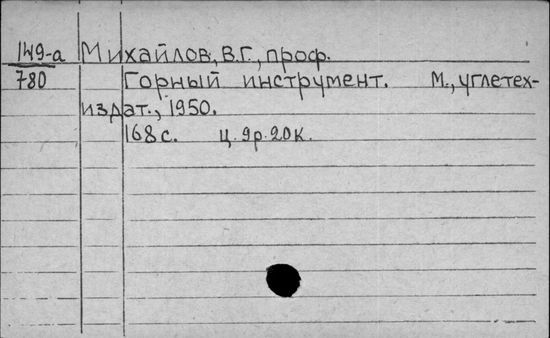 149-а Михайлов, В.Г., проф.
780 Горный инструмент. М., углетех-
издат., 1950.
168 с. ц. 9р. 20к.